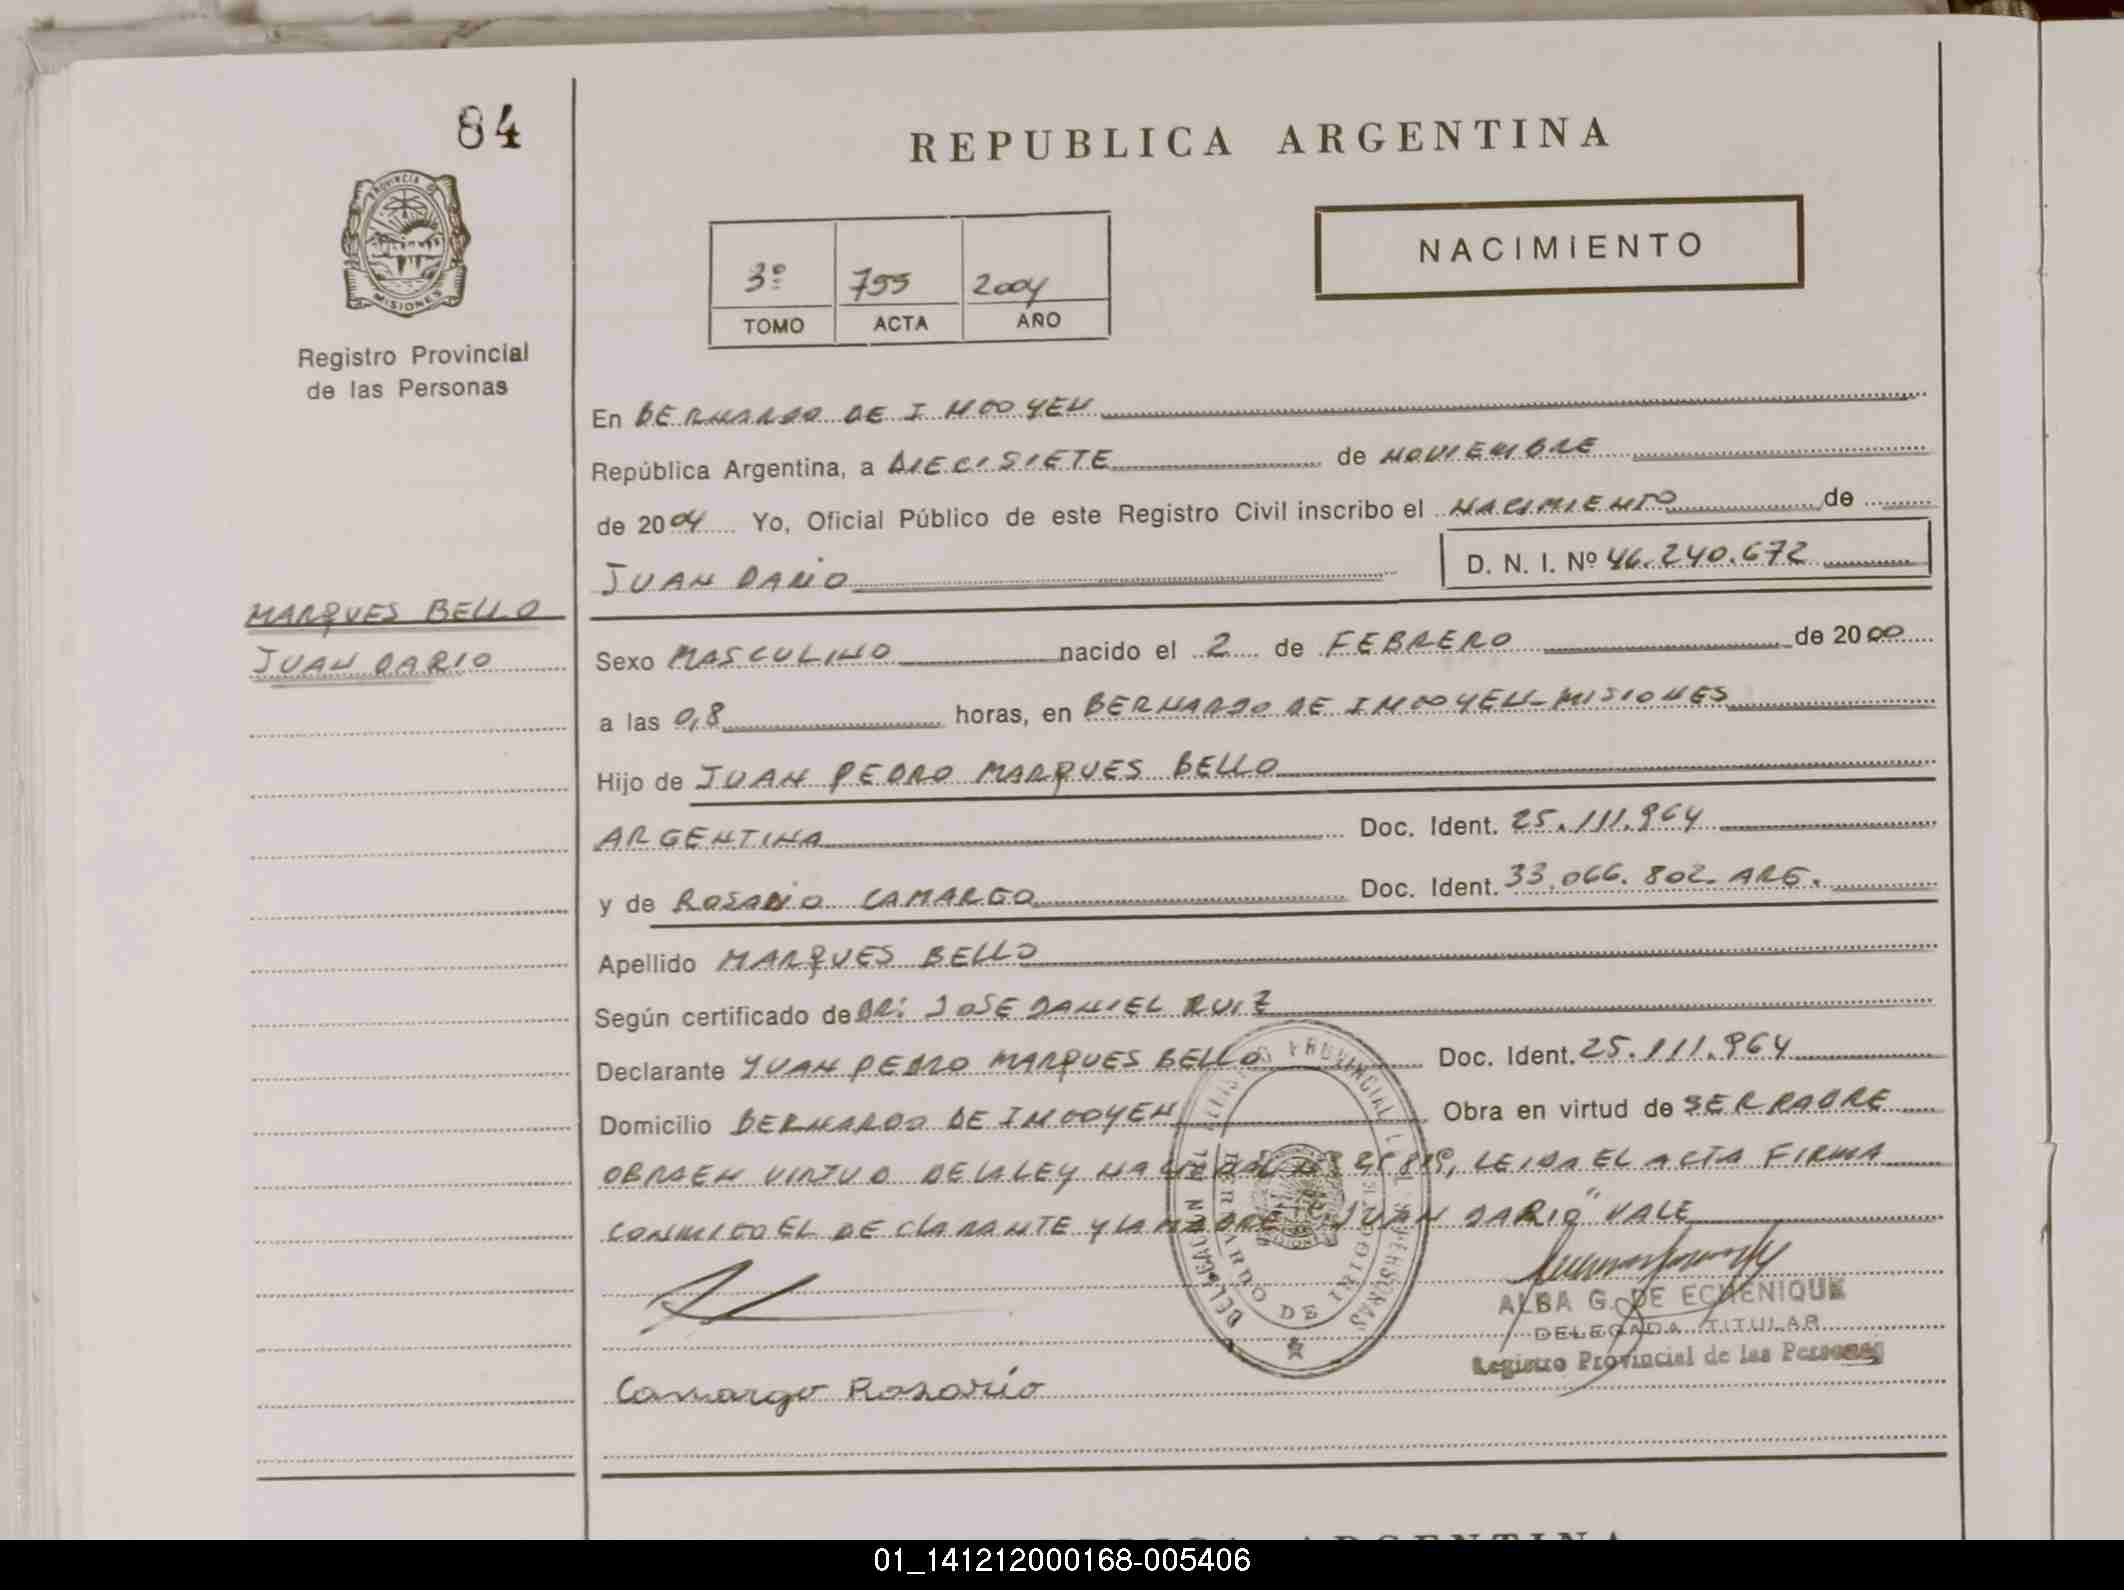 84
REPUBLICA ARGENTINA
PROVINCIA DE
MISIONES
Registro Provincial
de las Personas
3º 755 2004
TOMO ACTA AÑO
NACIMIENTO
En BERNARDO DE IRIGOYEN
República Argentina, a DIECISIETE de NOVIEMBRE
de 2004 Yo, Oficial Público de este Registro Civil inscribo el NACIMIENTO de
JUAN DARIO D. N. I. Nº 46.240.672
MARQUES BELLO
JUAN DARIO
Sexo MASCULINO nacido el 2 de FEBRERO de 2000
a las 0,8 horas, en BERNARDO DE IRIGOYEN-MISIONES
Hijo de JUAN PEDRO MARQUES BELLO
ARGENTINA Doc. Ident. 25.111.964
y de ROSARIO CAMARGO Doc. Ident. 33.066.802. ARG.
Apellido MARQUES BELLO
Según certificado de DR: JOSE DANIEL RUIZ
Declarante JUAN PEDRO MARQUES BELLO Doc. Ident. 25.111.964
Domicilio BERNARDO DE IRIGOYEN Obra en virtud de SER PADRE
OBRA EN VIRTUD DE LA LEY NACIONAL Nº LEIDA EL ACTA FIRMA
CONMIGO EL DECLARANTE Y LA MADRE "JUAN DARIO" VALE
REGISTRO PROVINCIAL DE LAS PERSONAS
DELEGACION
BERNARDO DE IRIGOYEN
ALBA G. DE ECHENIQUE
DELEGADA TITULAR
Registro Provincial de las Personas
Camargo Rosario
REPUBLICA ARGENTINA
01_141212000168-005406